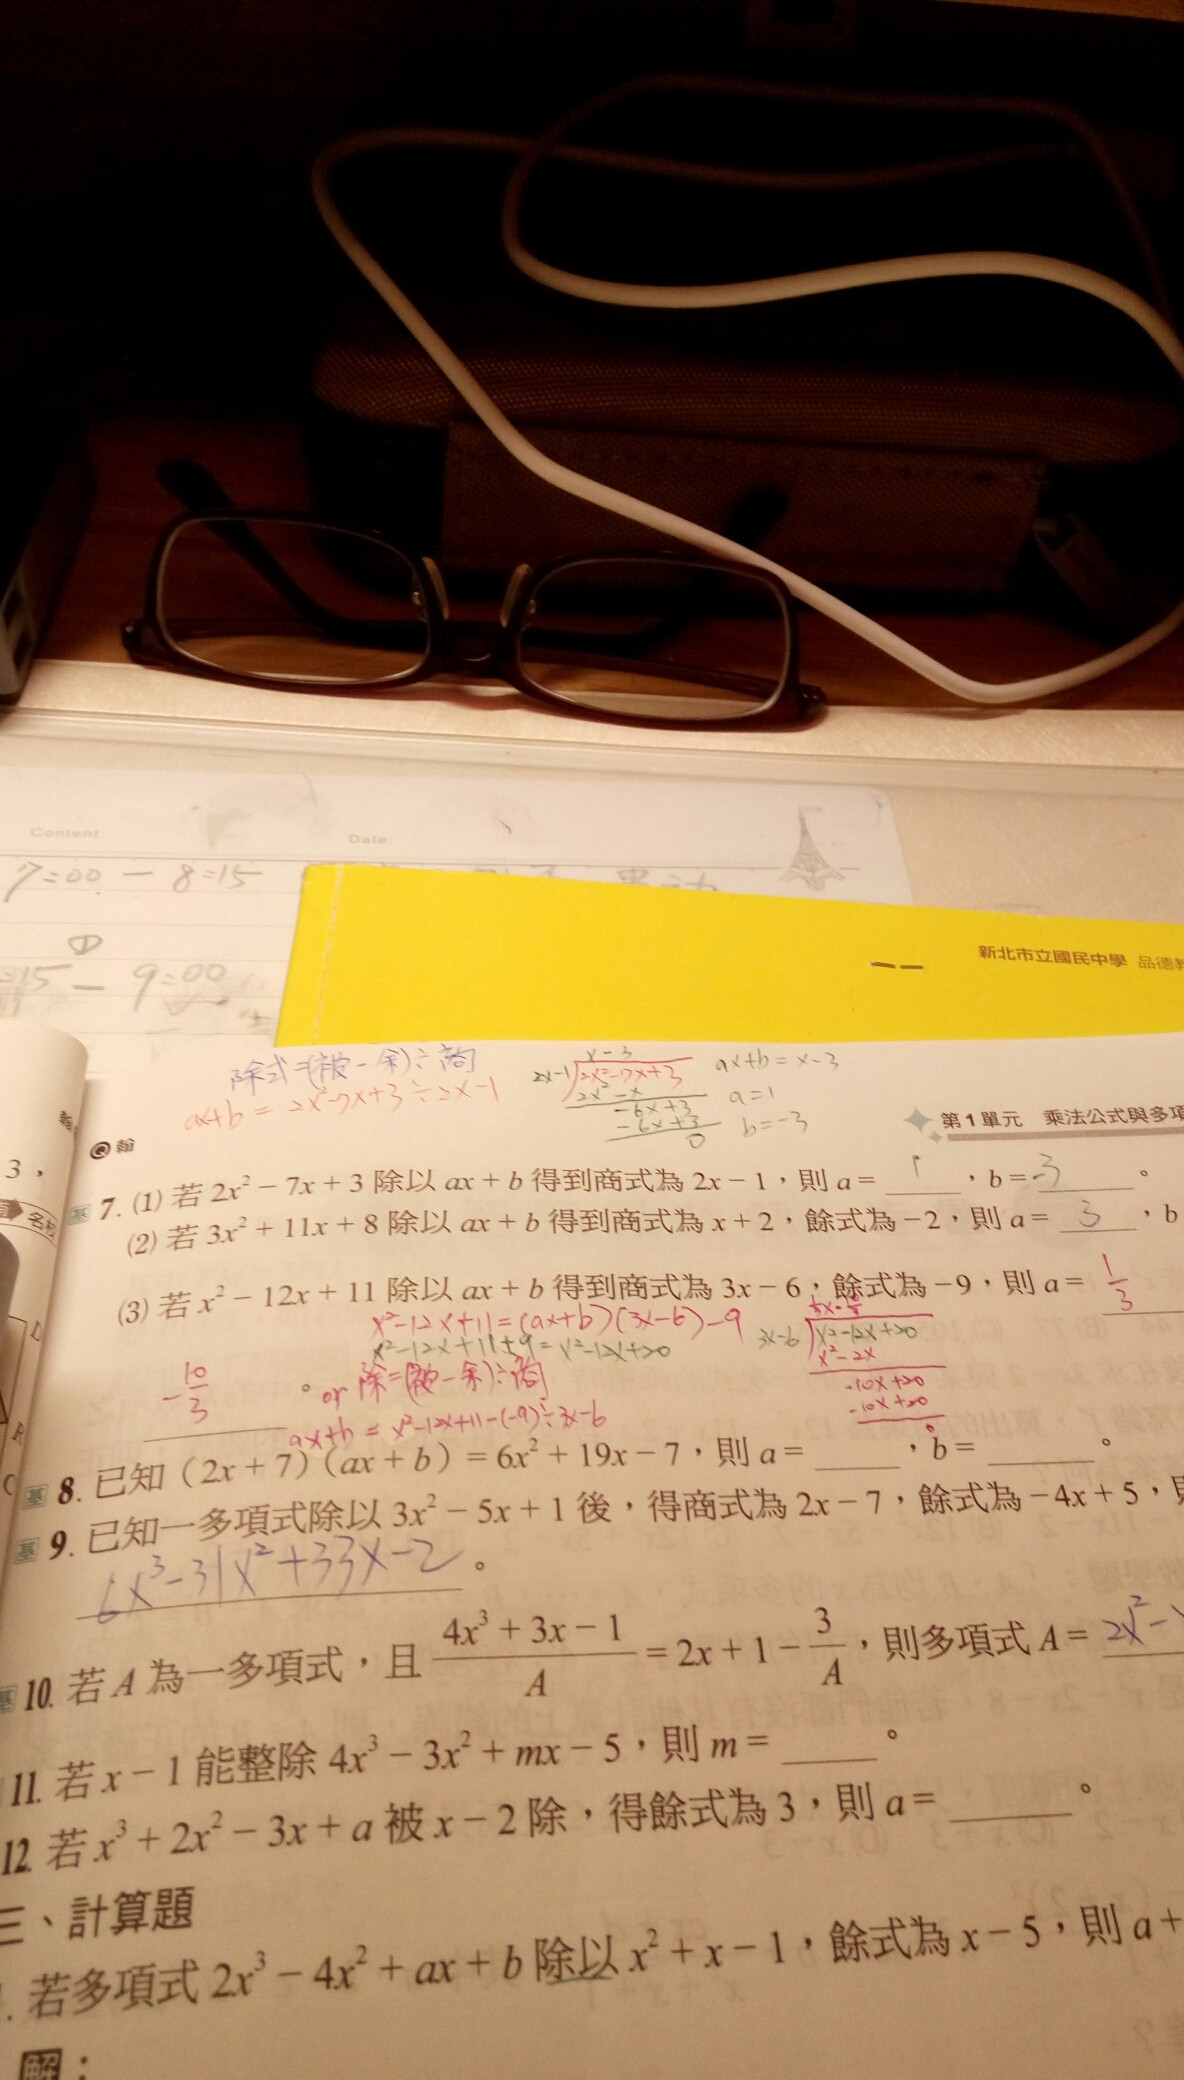 Content:
Date:
7:00 — 8:15
①
:15 — 9:00
新北市立國民中學 品德教
除式=(被-余)÷商
ax+b = 2x²-7x+3÷2x-1
x-3
2x-1
2x²-7x+3
2x²-x
-6x+3
-6x+3
0
ax+b = x-3
a=1
b=-3
翰
第1單元 乘法公式與多項
3,
名校
基 7. (1) 若 2x² − 7x + 3 除以 ax + b 得到商式為 2x − 1,則 a = 1,b = -3。
(2) 若 3x² + 11x + 8 除以 ax + b 得到商式為 x + 2,餘式為 −2,則 a = 3,b
(3) 若 x² − 12x + 11 除以 ax + b 得到商式為 3x − 6,餘式為 −9,則 a = 1/3
x²-12x+11=(ax+b)(3x-6)-9
x²-12x+11+9=x²-12x+20
3x-6
x²-12x+20
x²-2x
-10x+20
-10x+20
0
-10/3 。
or 除=(被-余)÷商
ax+b = x²-12x+11-(-9)÷3x-6
基 8. 已知(2x + 7)(ax + b)= 6x² + 19x − 7,則 a = ,b = 。
基 9. 已知一多項式除以 3x² − 5x + 1 後,得商式為 2x − 7,餘式為 −4x + 5,則
6x³-31x²+33x-2 。
基 10. 若 A 為一多項式,且 (4x³ + 3x − 1)/A = 2x + 1 − 3/A,則多項式 A = 2x²-
11. 若 x − 1 能整除 4x³ − 3x² + mx − 5,則 m = 。
12 若 x³ + 2x² − 3x + a 被 x − 2 除,得餘式為 3,則 a = 。
三、計算題
. 若多項式 2x³ − 4x² + ax + b 除以 x² + x − 1,餘式為 x − 5,則 a +
解: